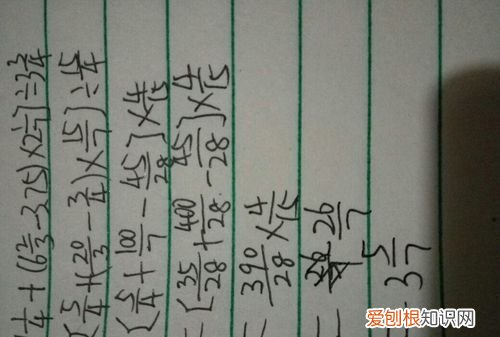 1/4+(6 2/3-3.75)×2 1/7]÷3 3/4
[5/4+(20/3-3/4)×15/7]÷15/4
[5/4+100/7-45/28]×4/15
=[35/28+400/28-45/28]×4/15
=390/28×4/15
=26/7
=3 5/7
爱刨根知识网